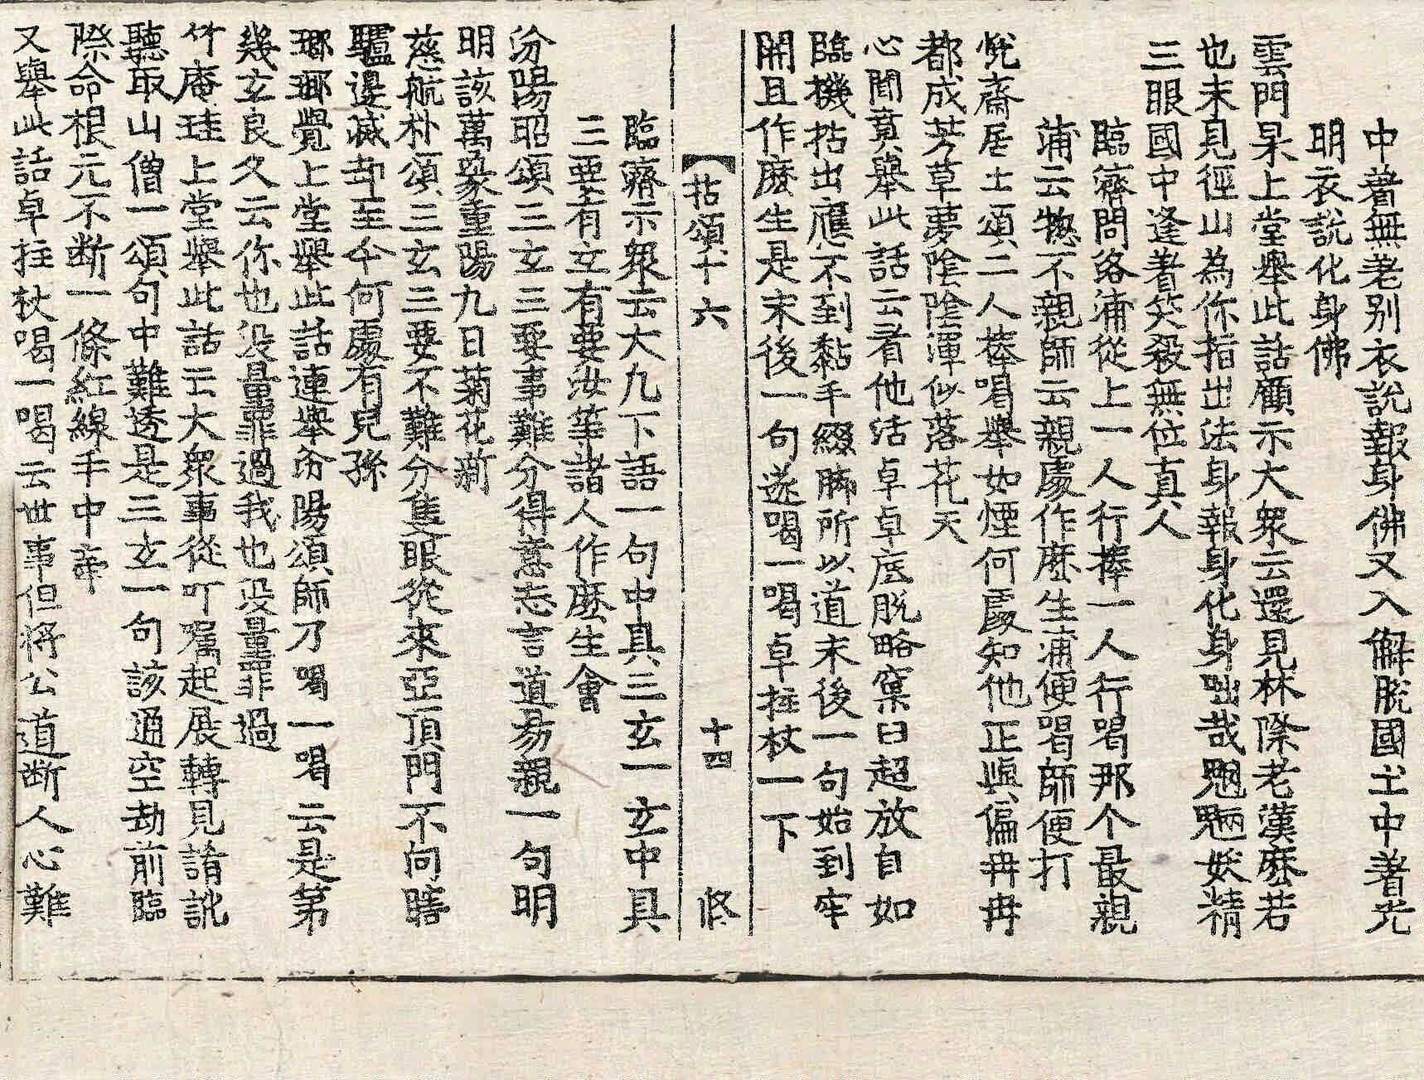 中著無老别衣說報身佛又入解脫國土中著光
明衣說化身佛
雲門杲上堂舉此話顧示大衆云還見林際老漢麽若
也未見徑山為你指出法身報身化身咄哉魍魎妖精
三眼國中逢著笑殺無位真人
臨濟問洛浦從上一人行棒一人行喝那个最親
浦云揔不親師云親處作麽生浦便喝師便打
悅齋居士頌二人棒喝舉如煙何處知他正與偏冉冉
都成芳草夢陰陰渾似落花天
心聞賁舉此話云看他活卓卓底脫略窠臼超放自如
臨機拈出應不到黏手綴脚所以道末後一句始到牢
關且作麽生是末後一句遂喝一喝卓拄杖一下
拈頌十六　十四　修
臨濟示衆云大凡下語一句中具三玄一玄中具
三要有玄有要汝等諸人作麽生會
汾陽昭頌三玄三要事難分得意忘言道易親一句明
明該萬象重陽九日菊花新
慈航朴頌三玄三要不難分隻眼從來亞頂門不向瞎
驢邊滅却至今何處有兒孫
瑯瑘覺上堂舉此話連舉汾陽頌師乃喝一喝云是第
幾玄良久云你也没量罪過我也没量罪過
竹庵珪上堂舉此話云大衆事從叮嘱起展轉見誵訛
聽取山僧一頌句中難透是三玄一句該通空劫前臨
際命根元不断一條紅線手中牽
又舉此話卓拄杖喝一喝云世事但將公道断人心難